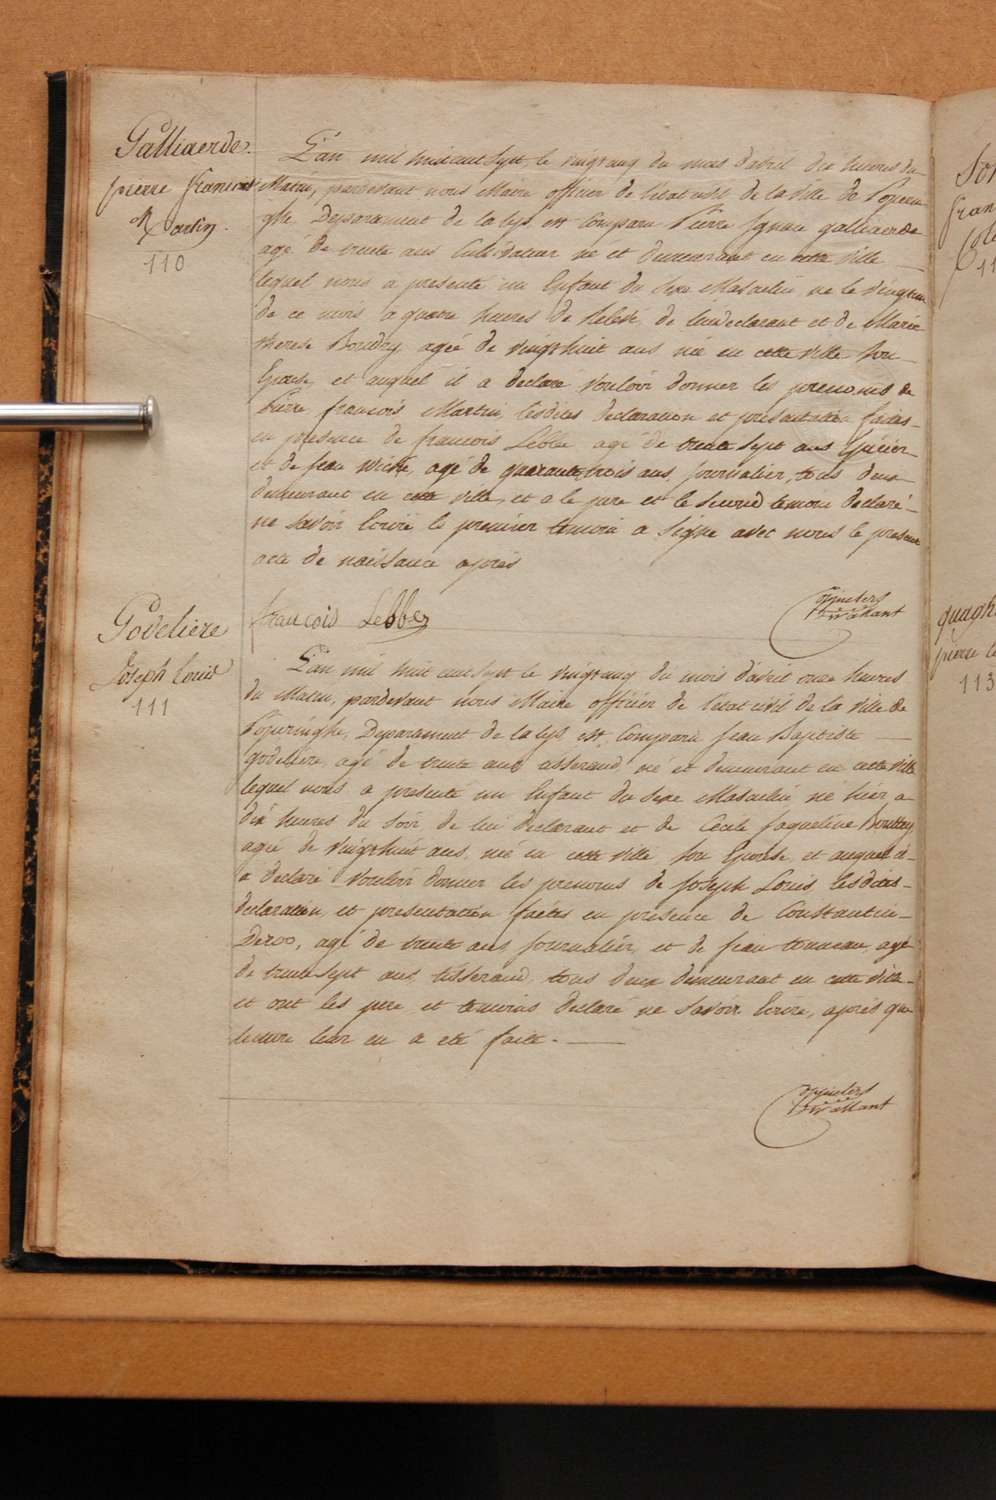 Galliaerde.
pierre francois
Martin.
110
L'an mil huit cent sept le vingt cinq du mois d'avril dix heures du
Matin, pardevant nous Maire officier de l'état civil de la ville de Poperin
ghe, Departement de la lys, est Comparu Pierre Ignace galliaerde
agé de trente ans Cultivateur né et demeurant en cette ville
lequel nous a presenté un Enfant du sexe Masculin né le vingt
de ce mois a quatre heures de de lui declarant et de Marie
therese Boudry agée de vingt huit ans née en cette ville Son
Epouse, et auquel il a declaré vouloir donner les prenoms de
Pierre francois Martin, lesdites declaration et presentation faites
en presence de francois Lebbe agé de trente sept ans Epicier
et de jean agé de quarante trois ans, journalier, tous deux
demeurant en cette ville, et a le pere et le second temoin declaré
ne Savoir Ecrire le premier temoin a Signé avec nous le present
acte de naissance après
francois Lebbe
Godeliere
Joseph Louis
111
L'an mil huit cent sept le vingt cinq du mois d'avril onze heures
du Matin, pardevant nous Maire officier de l'état civil de la ville de
Poperinghe, Departement de la lys, est Comparu Jean Baptiste
godeliere, agé de trente ans tisserand né et demeurant en cette ville
lequel nous a presenté un Enfant du Sexe Masculin né hier a
dix heures du Soir de lui declarant et de Cecile Jaqueline
agée de vingt huit ans, née en cette ville Son Epouse, et auquel il
a declaré vouloir donner les prenoms de Joseph Louis, lesdites
declaration et presentation faites en presence de Constantin
Deroo, agé de trente ans journalier, et de jean tonneau agé
de trente sept ans, tisserand, tous deux demeurant en cette ville
et ont les pere et temoins declaré ne Savoir Ecrire, après que
lecture leur en a été faite.
Son
fran
11
quagh
pierre
113